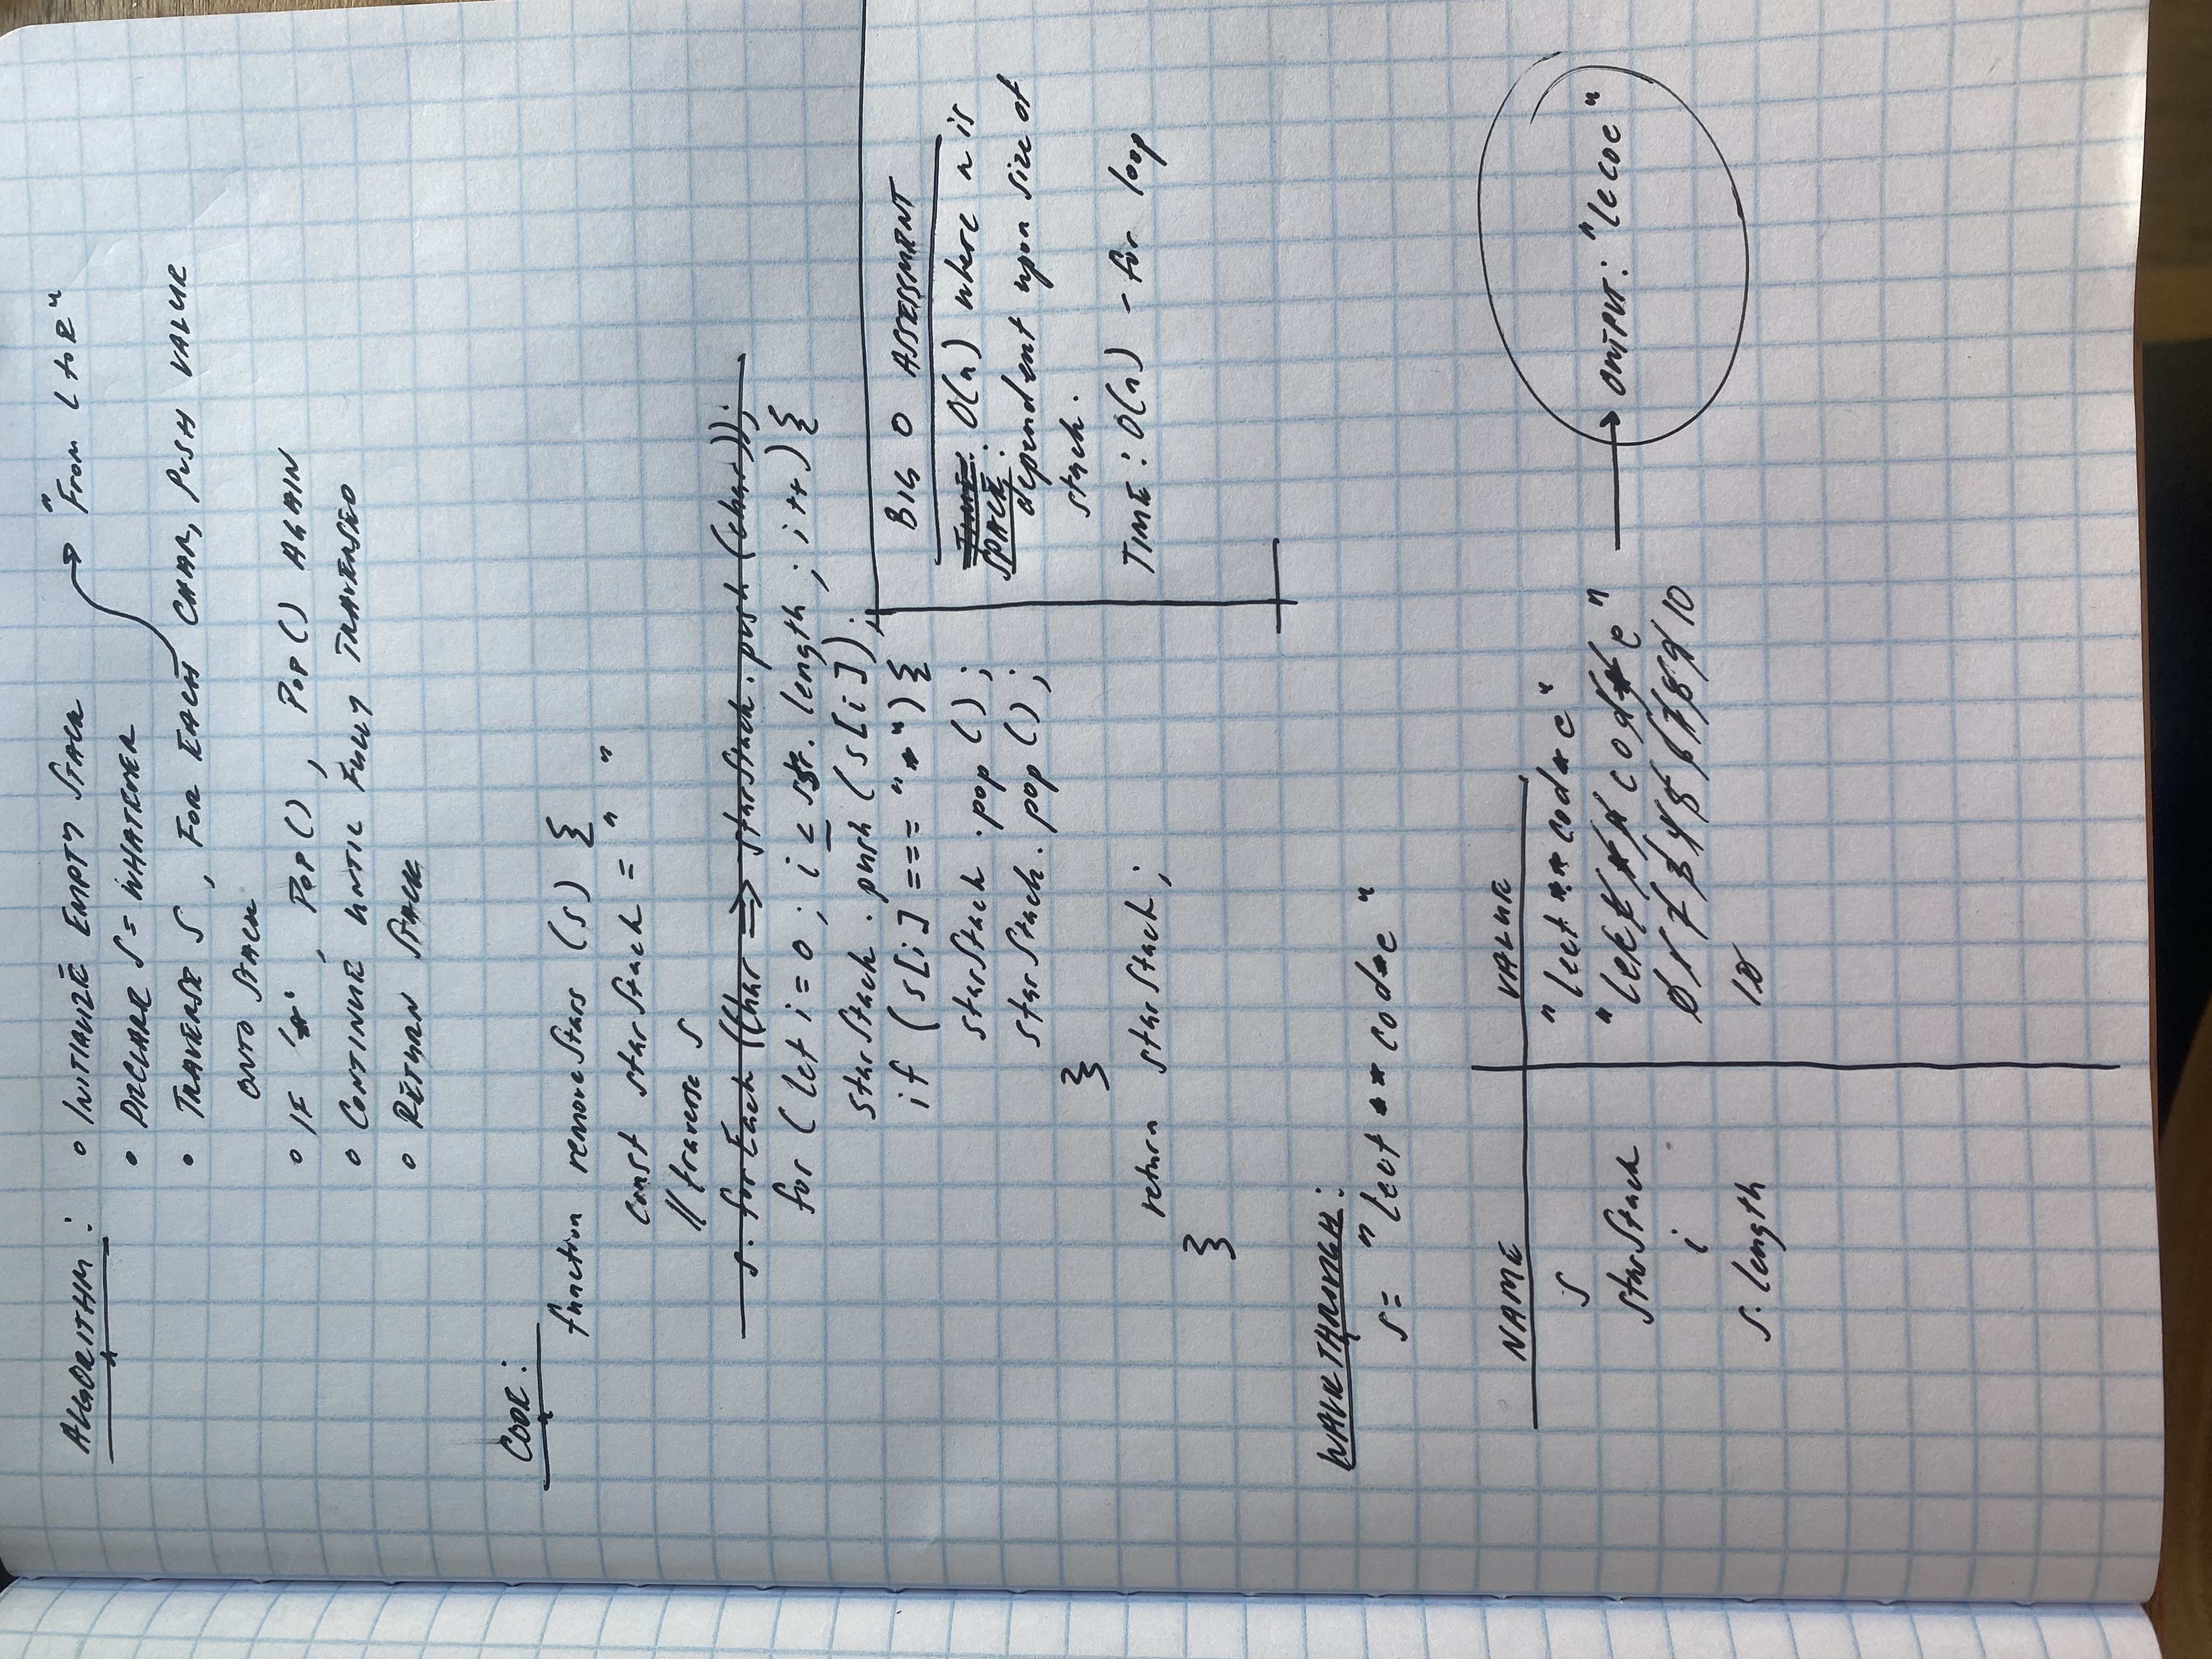 ALGORITHM:
• INITIALIZE EMPTY STACK
"From L to R"
• DECLARE S = WHATEVER
• TRAVERSE S, FOR EACH CHAR, PUSH VALUE
ONTO STACK
• IF '*', POP(), POP() AGAIN
• CONTINUE UNTIL FULLY TRAVERSED
• RETURN STACK
CODE:
function removeStars (s) {
const starStack = " "
// traverse s
s.forEach ((char => starStack.push (char));
for (let i = 0; i ≤ str.length; i++) {
starStack.push (s[i]);
if (s[i] === "*") {
starStack.pop();
starStack.pop();
}
return starStack;
}
BIG O ASSESSMENT
TIME: O(n) where n is
SPACE:
dependent upon size of
stack.
TIME: O(n) - for loop
WALKTHROUGH:
s = "leet**cod*e"
NAME VALUE
s "leet**cod*e"
starStack "leet**cod*e" → OUTPUT: "lecoe"
i 0 1 2 3 4 5 6 7 8 9 10
s.length 10